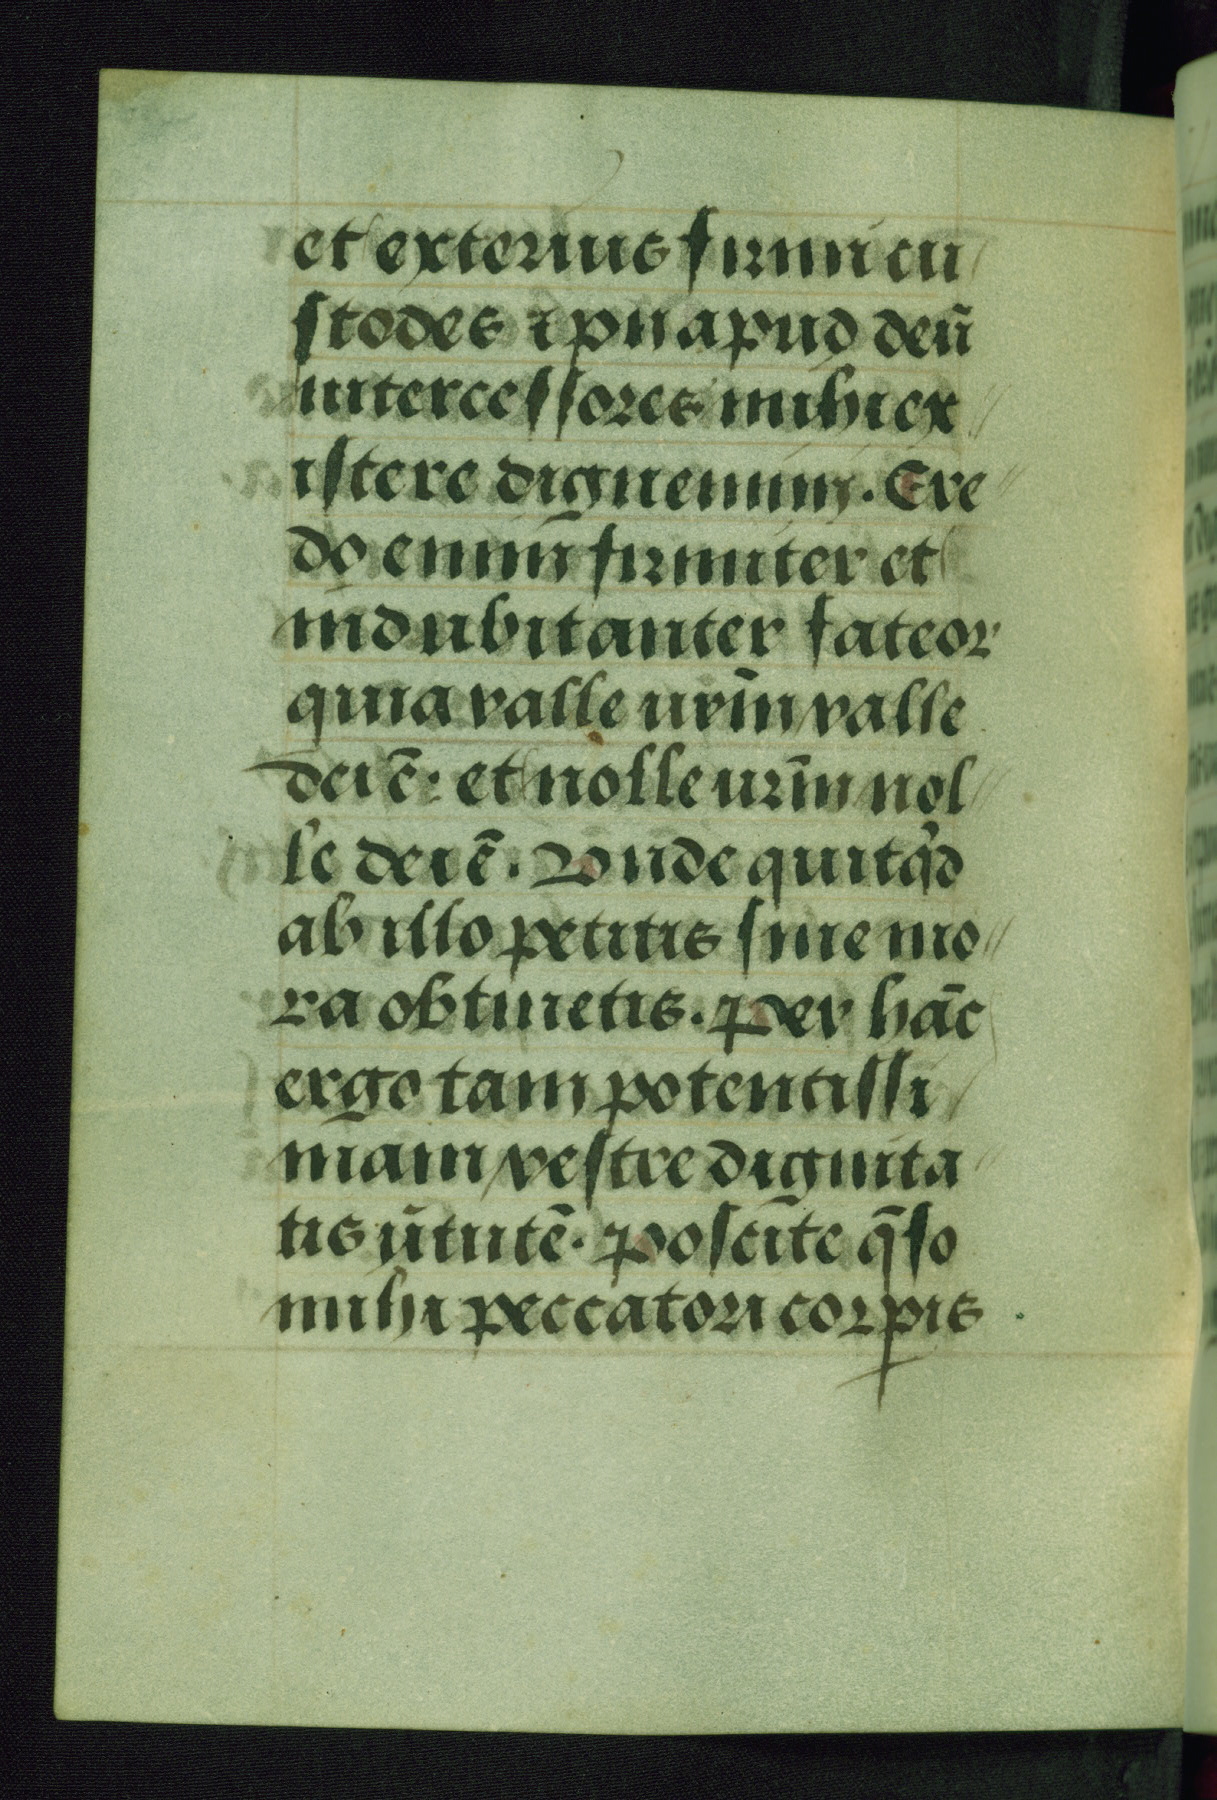 et exterius firmi cu
stodes ⁊ pii apud deū
intercessores mihi ex
istere dignemini. Cre
do enim̄ firmiter et
indubitanter fateor
quia valle urīm valle
dei ē· et nolle urīm nol
le dei ē. Vnde quitqd
ab illo petitis sine mo
ra obtinetis. Per hāc
ergo tam potentissi
mam vestre dignita
tis ūtutē. Poscīte q̄so
mihi peccatori corpis